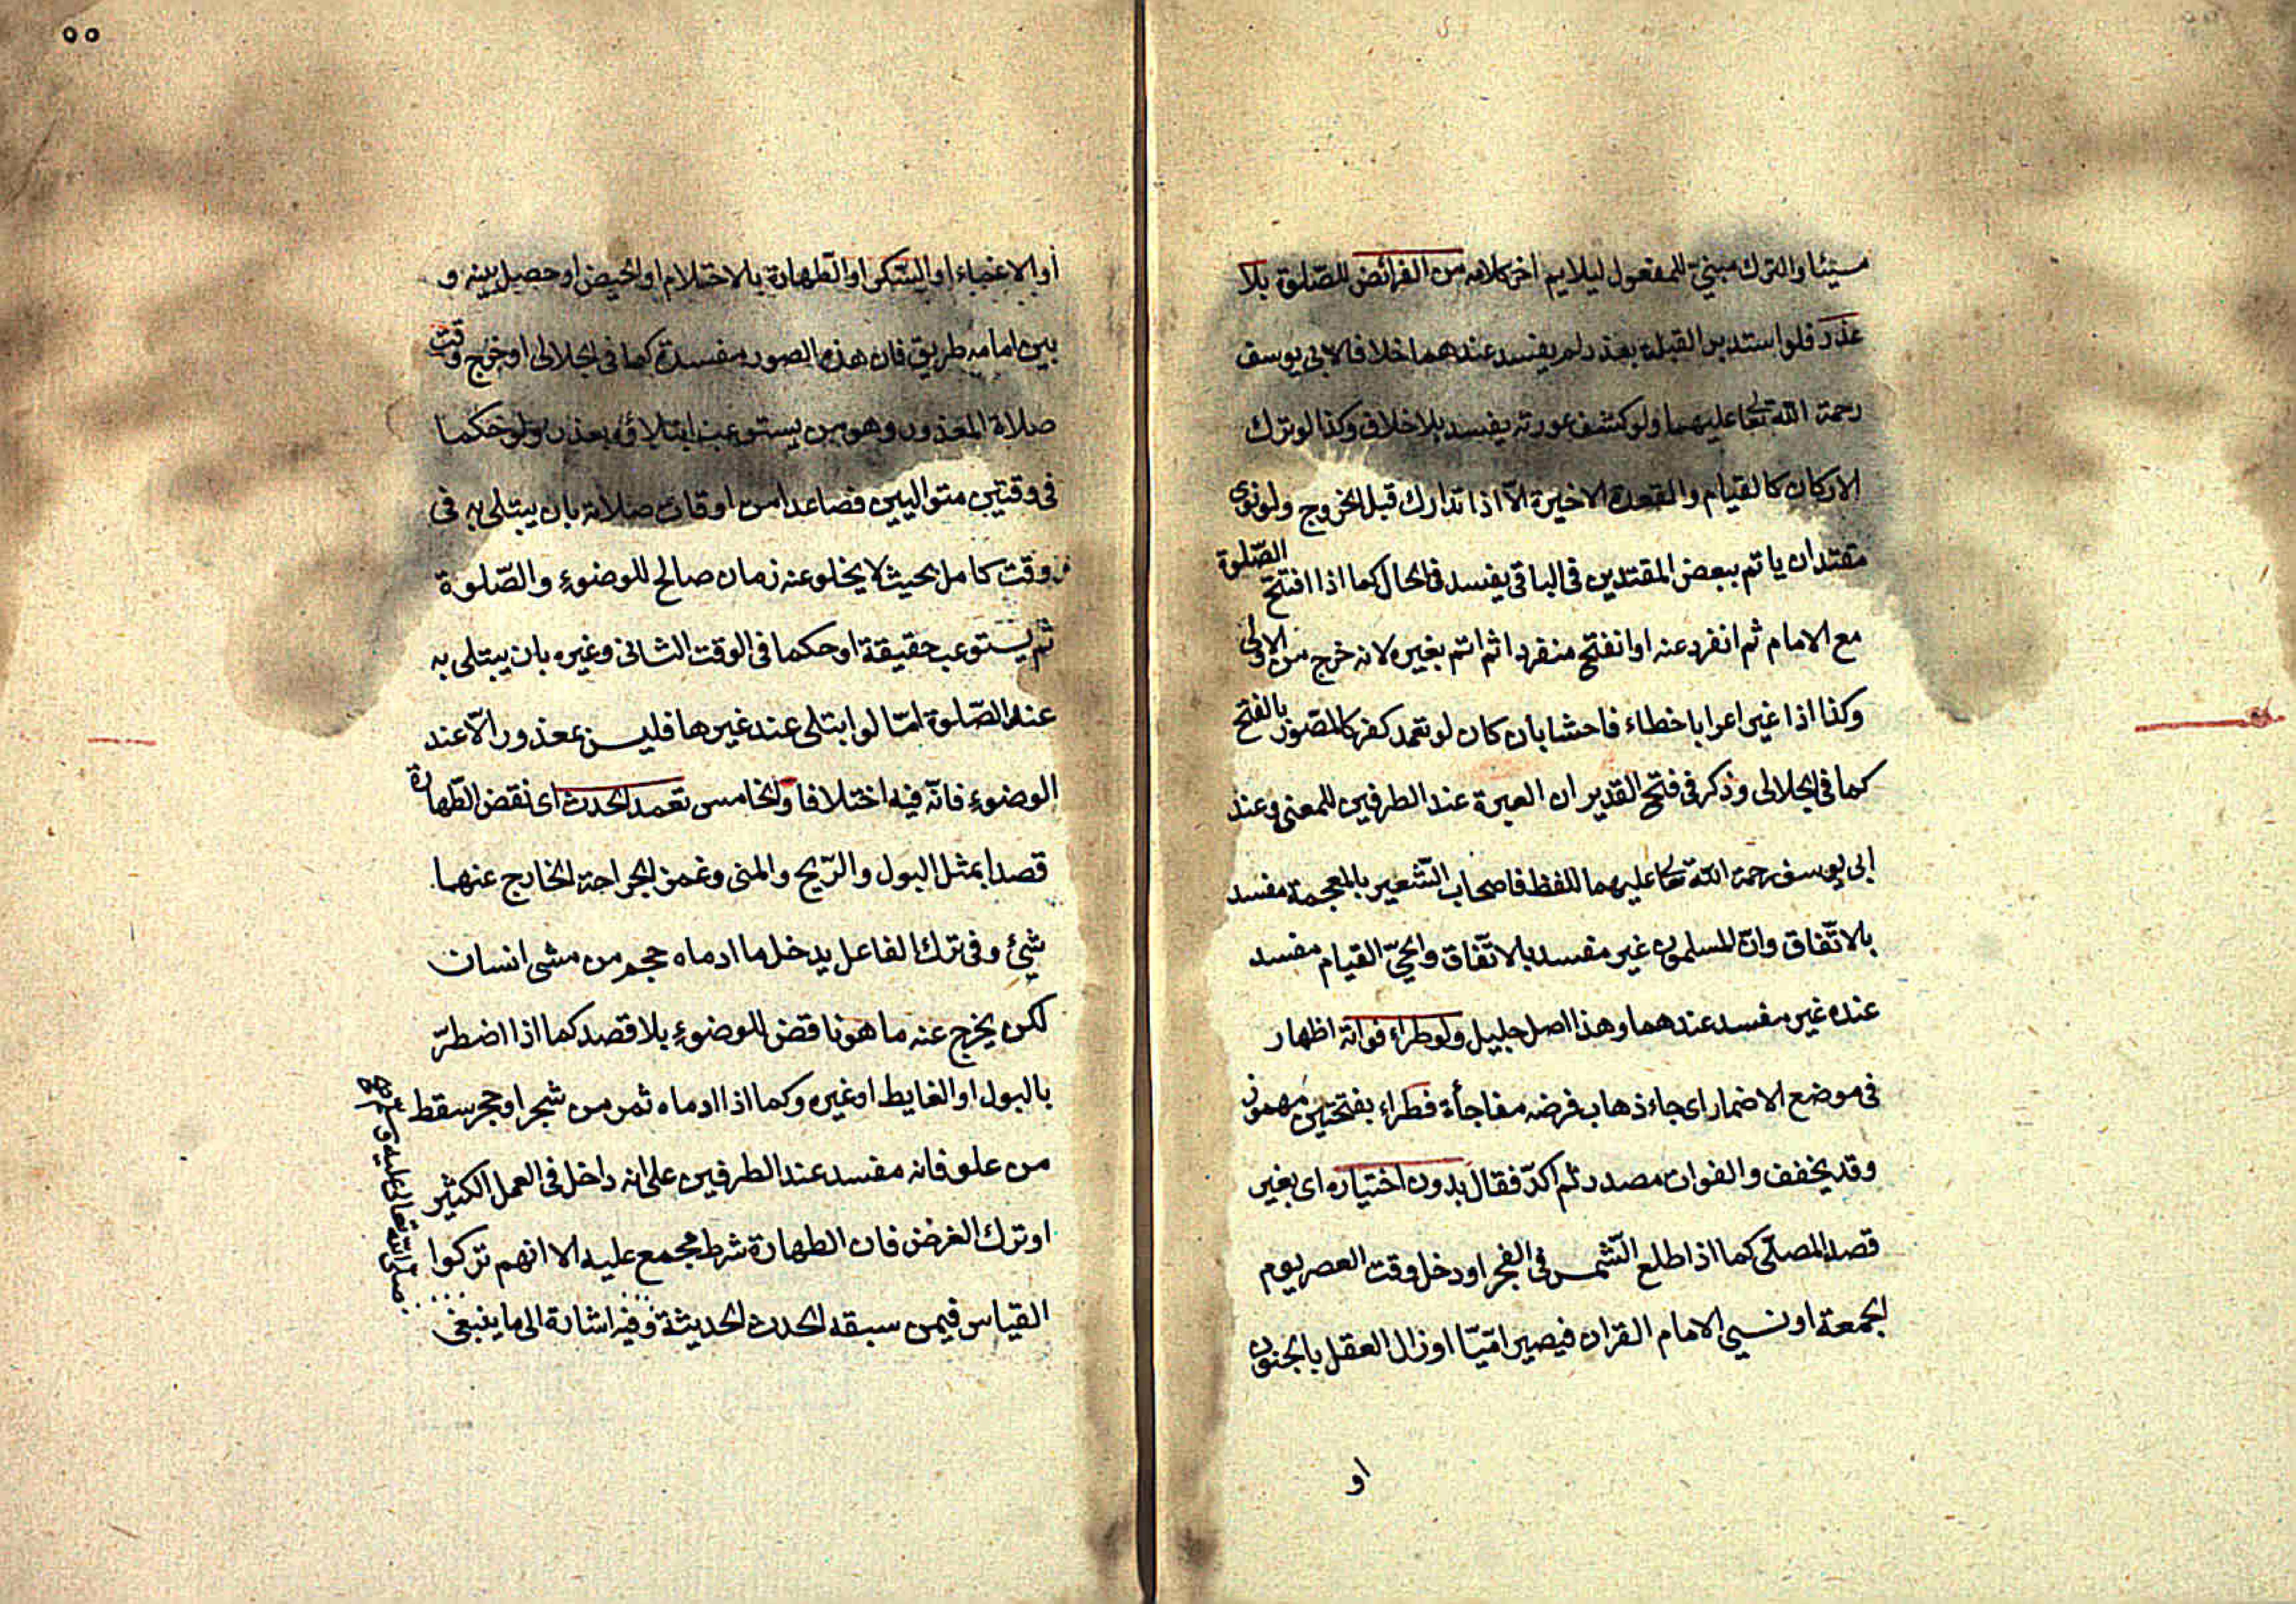 شيئا والترك مبني للمفعول ليلايم اخر كلامه من الفرائض للصّلوة بلا
عذر فلو استدبر القبلة بعذر لم يفسد عندهما خلافا لابي يوسف
رحمة الله تعا عليهما ولو كشف عورته يفسد بلا خلاف وكذا لو ترك
الاركان كالقيام والقعدة الاخيرة الّا اذا تدارك قبل الخروج ولو نوى
مقتد ان ياتم ببعض المقتدين فى الباقى يفسد فى الحال كما اذا افتتح الصّلوة
مع الامام ثم انفرد عنه او انفتح منفردا ثم اتم بغيره لانه خرج من الاولى
وكذا اذا غير اعرابا خطاء فاحشا بان كان لو تعمد كفر كالمصّور بالفتح
كما فى الجلالى وذكر فى فتح القدير ان العبرة عند الطرفين للمعنى وعند
ابى يوسف رحمة الله تعا عليهما للفظ فاصحاب الشّعير بالمعجمة مفسد
بالاتّفاق وانّ المسلمون غير مفسد بالاتّفاق والحىّ القيام مفسد
عنده غير مفسد عندهما وهذا اصل جليل ولو طراء فواته اظهار
فى موضع الاضمار اى جاء ذهاب فرضه مفاجأة فطراء بفتحتين مهموز
وقد يخفف والفوات مصدر ثم اكدّ فقال بدون اختياره اى بغير
قصد المصلّى كما اذا طلع الشّمس فى الفجر او دخل وقت العصر يوم
الجمعة او نسى الامام القران فيصير امّيّا او زال العقل بالجنون
او
٥٥
أو الاغماء او السّكر او الطّهارة بالاحتلام او الحيض او حصل بينه و
بين امامه طريق فان هذه الصور مفسدة كما فى الجلالى او خرج وقت
صلاة المعذور وهو من يستوعب ابتلاؤه بعذر ولو حكما
فى وقتين متواليين فصاعدا من اوقات صلاته بان يبتلى به فى
وقت كامل بحيث لا يخلو عنه زمان صالح للوضوء والصّلوة
ثم يستوعب حقيقة او حكما فى الوقت الثانى وغيره بان يبتلى به
عند الصّلوة امّا لو ابتلى عند غيرها فليس بمعذور الّا عند
الوضوء فانّه فيه اختلافا والخامس تعمد الحدث اى نقض الطّهارة
قصدا بمثل البول والرّيح والمنى وغمز الجراحة الخارج عنهما
شيئ وفى ترك الفاعل يدخل ما ادماه حجر من مشى انسان
لكن يخرج عنه ما هو ناقض للوضوء بلا قصد كما اذا اضطرّ
بالبول او الغايط او غيره وكما اذا ادماه ثمر من شجر او حجر سقط
من علو فانه مفسد عند الطرفين على انه داخل فى العمل الكثير
او ترك الفرض فان الطهارة شرط مجمع عليه الا انهم تركوا
القياس فيمن سبقه الحدث لحديثه وفيه اشارة الى ما ينبغى
صلى الله تعالى عليه و